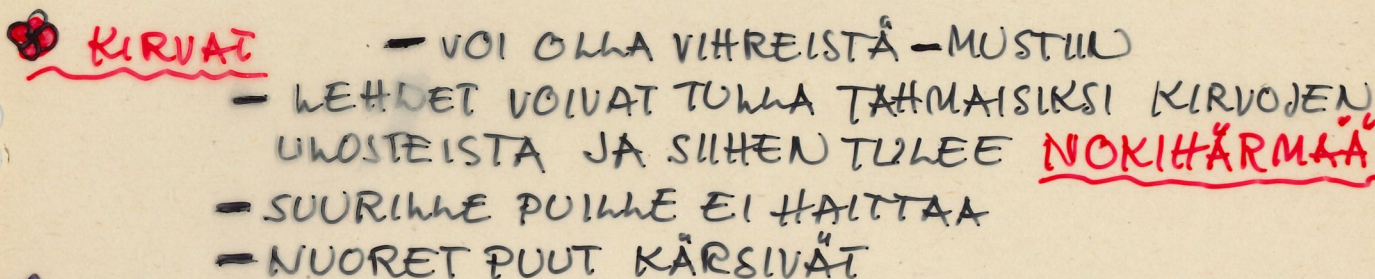 KIRVAT - VOI OLLA VIHREISTÄ - MUSTIIN
- LEHDET VOIVAT TULLA TAHMAISIKSI KIRVOJEN
ULOSTEISTA JA SIIHEN TULEE NOKIHÄRMÄÄ
- SUURILLE PUILLE EI HAITTAA
- NUORET PUUT KÄRSIVÄT